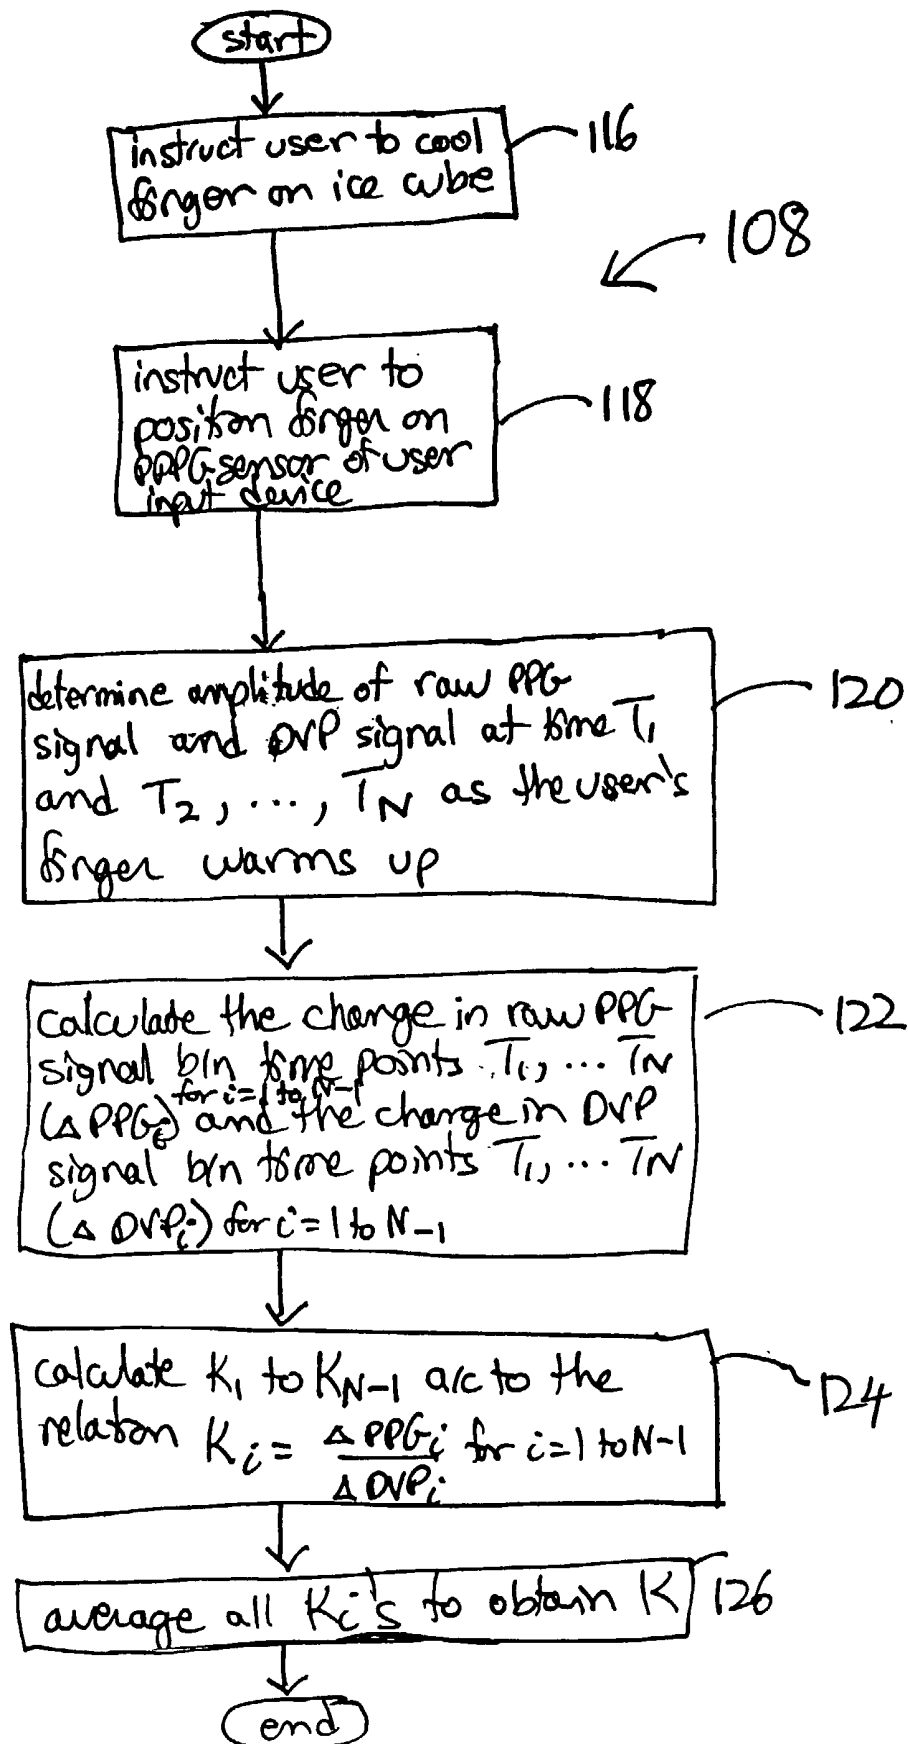 start
instruct user to cool
finger on ice cube
116
108
instruct user to
position finger on
PPG sensor of user
input device
118
determine amplitude of raw PPG
signal and DVP signal at time T1
and T2, ..., TN as the user's
finger warms up
120
calculate the change in raw PPG
signal b/n time points T1, ... TN
for i=1 to N-1
(△ PPGi) and the change in DVP
signal b/n time points T1, ... TN
(△ DVPi) for i=1 to N-1
122
calculate K1 to KN-1 a/c to the
relation Ki = △ PPGi / △ DVPi for i=1 to N-1
124
average all Ki's to obtain K
126
end